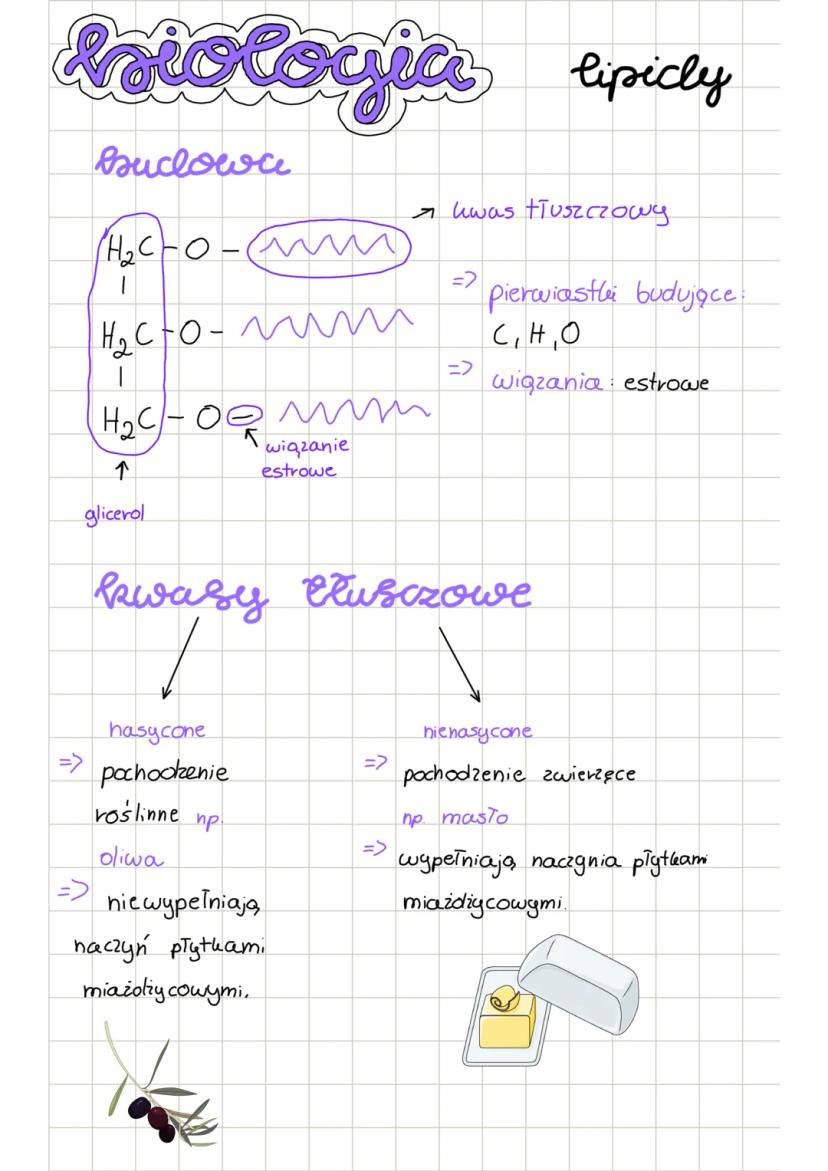 biologia
lipidy
budowa
H₂C - O -
H₂C - O -
H₂C - O =
kwas tłuszczowy
=> pierwiastki budujące:
C, H, O
=> wiązania: estrowe
wiązanie
estrowe
glicerol
kwasy tłuszczowe
nasycone
=> pochodzenie
roślinne np.
oliwa
=> niewypełniają
naczyń płytkami
miażdżycowymi.
nienasycone
=> pochodzenie zwierzęce
np. masło
=> wypełniają naczynia płytkami
miażdżycowymi.